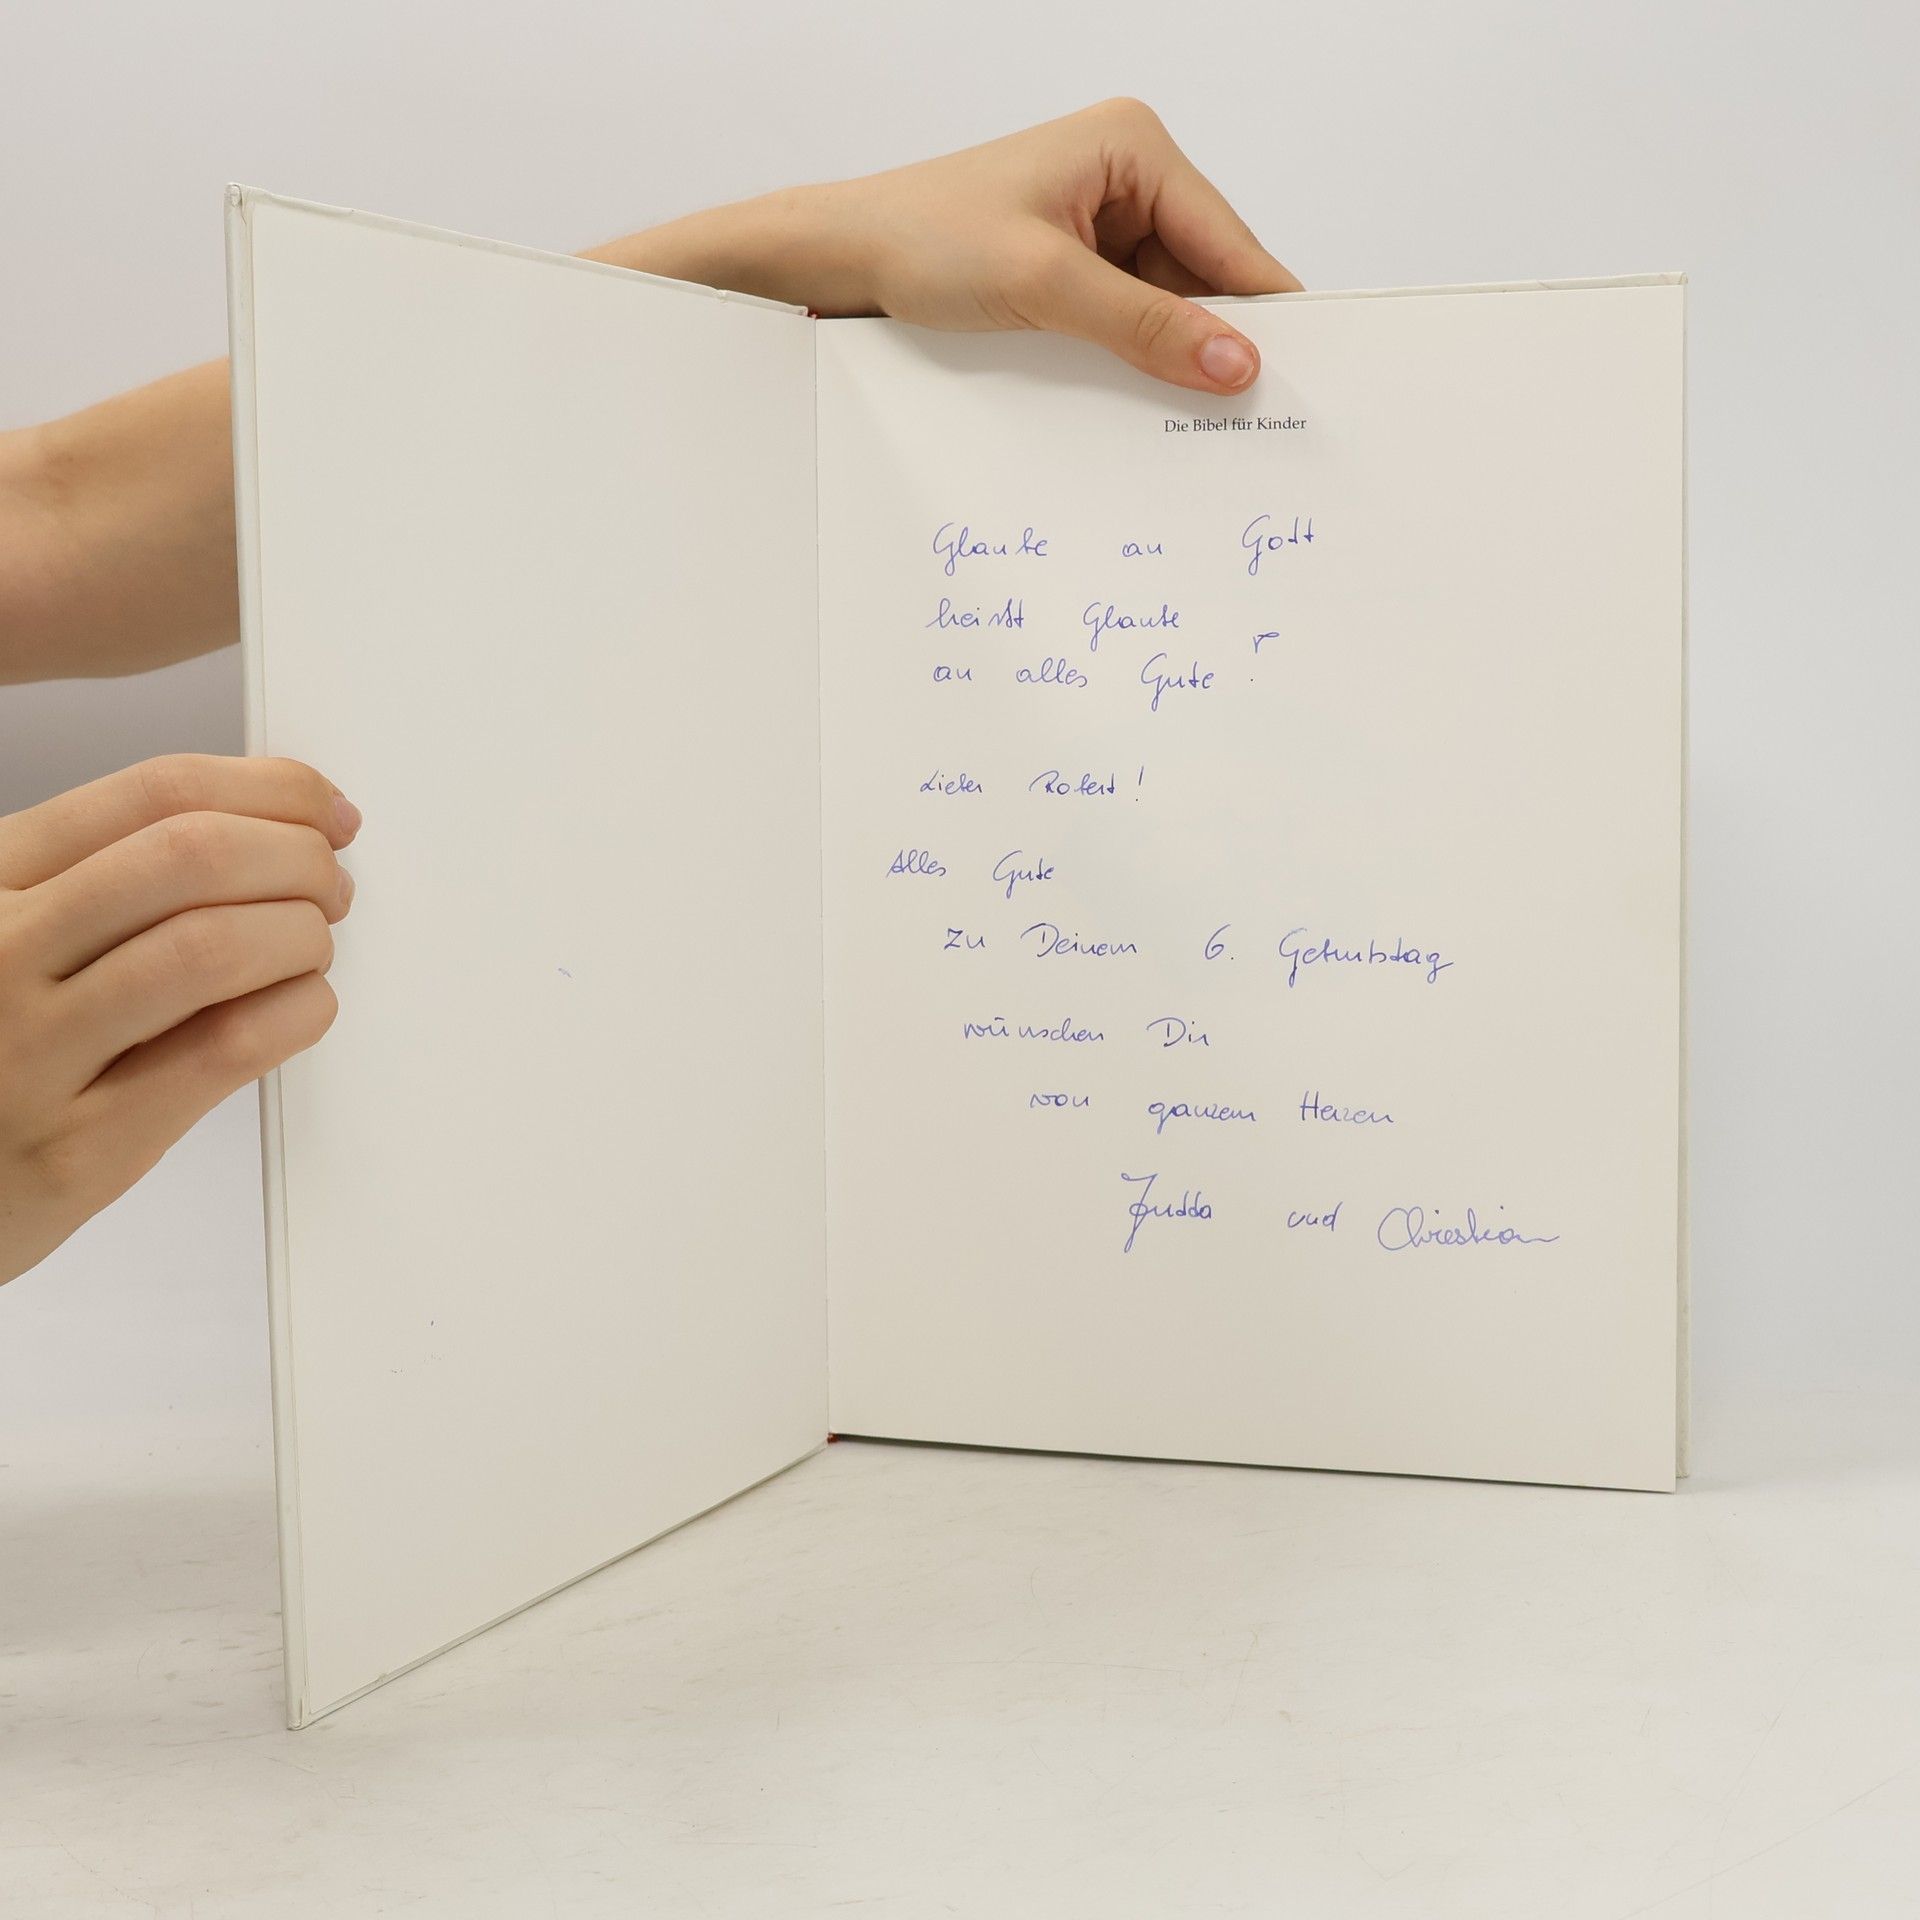 Die Bibel für Kinder
Glaube an Gott
heisst Glaube
an alles Gute !
Lieber Robert!
Alles Gute
zu Deinem 6. Geburtstag
wünschen Dir
von ganzem Herzen
und Christian